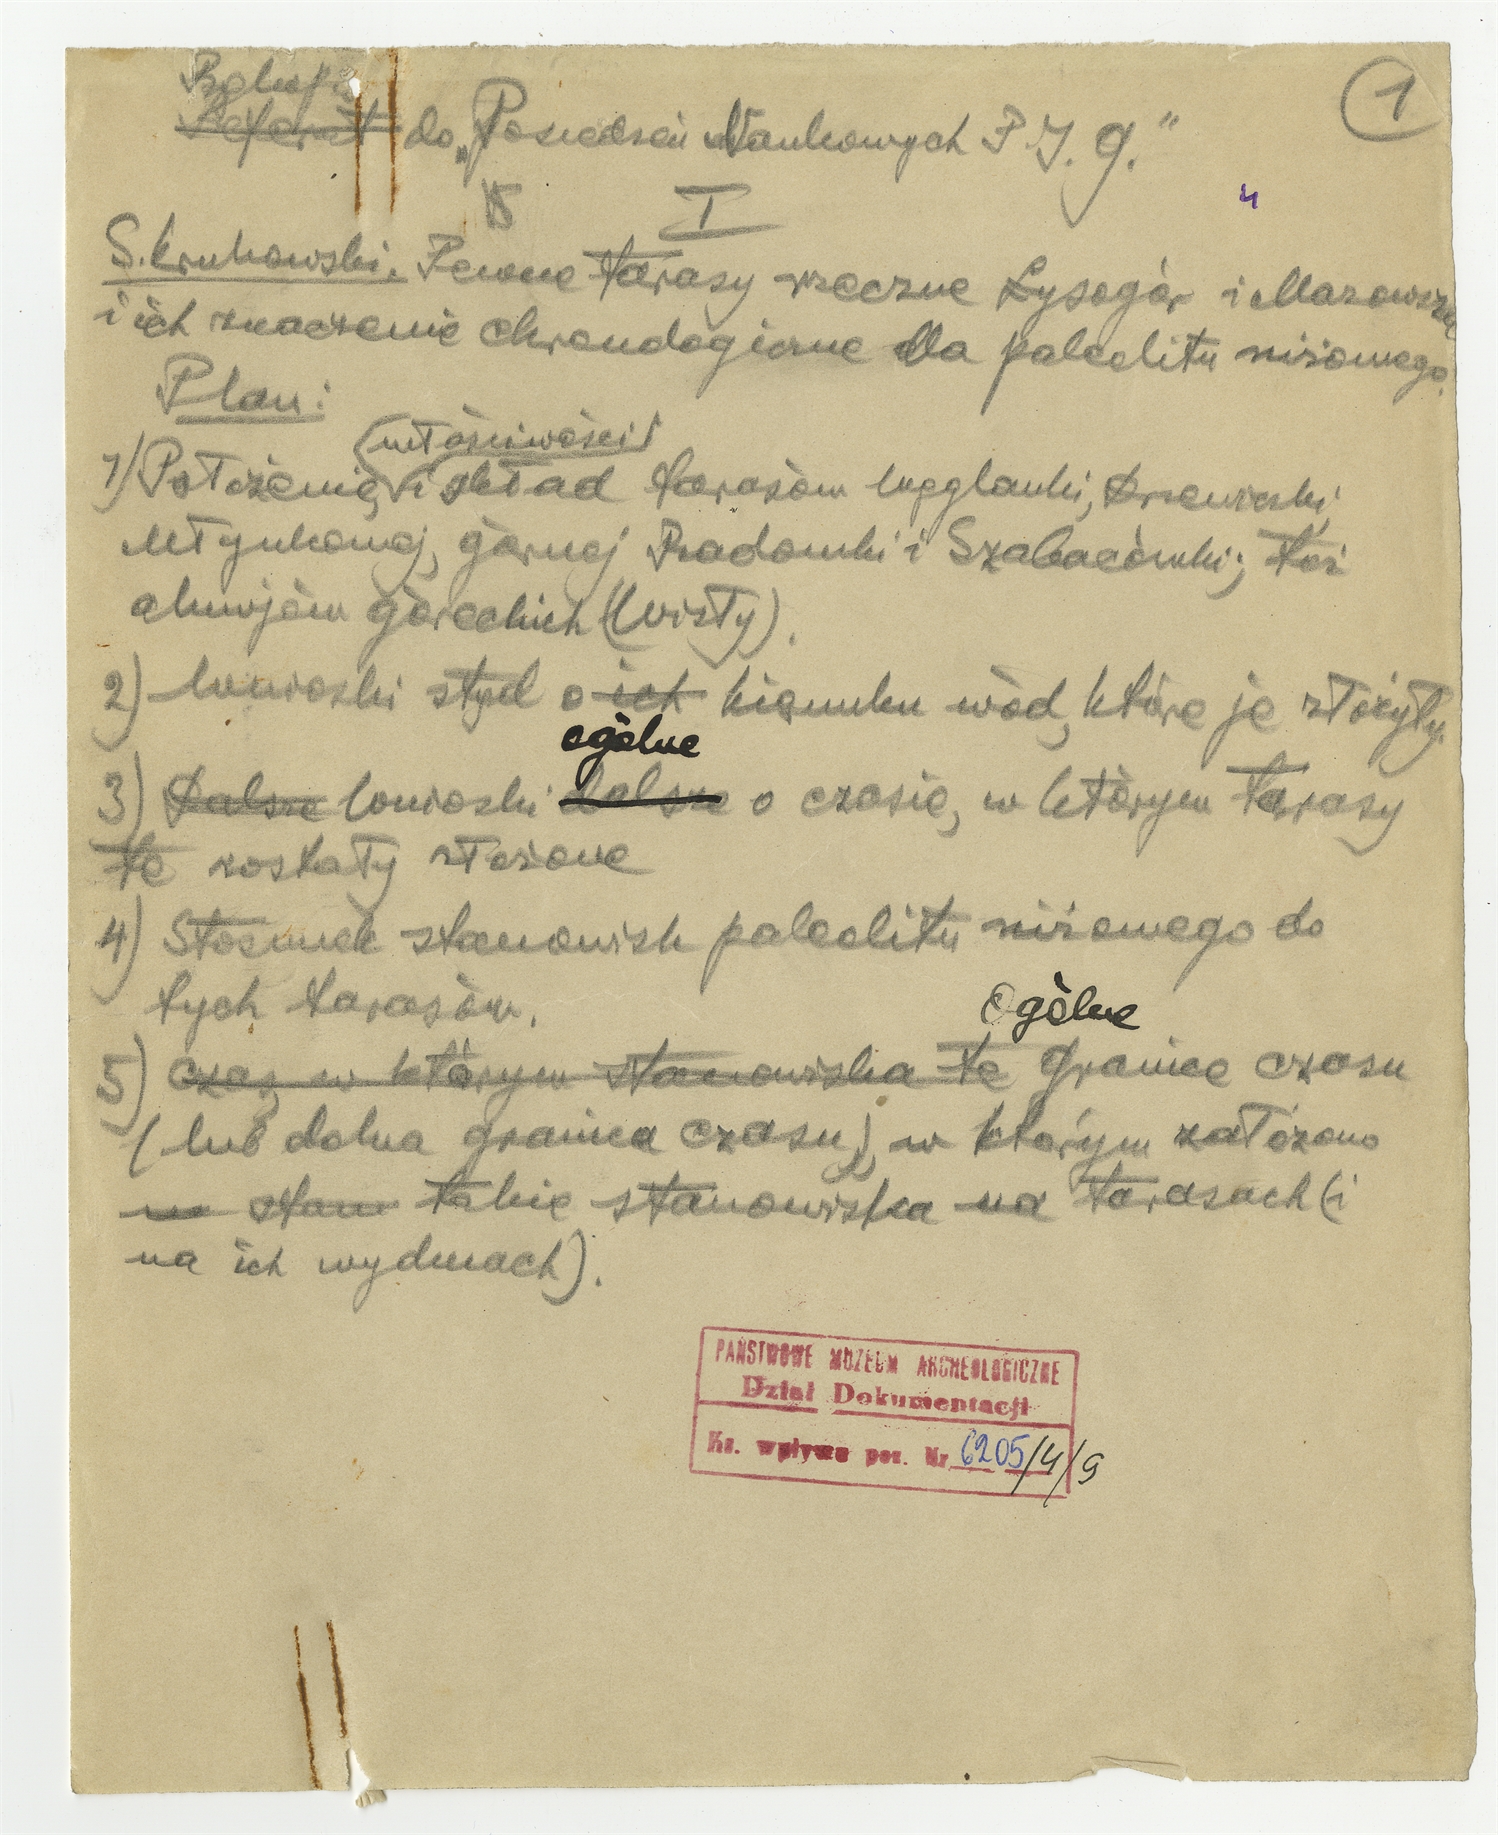 Rękopis
Referat do „Posiedzeń Naukowych P. I. G.”
1
I
4
S. Krukowski. Pewne tarasy rzeczne Łysogór i Mazowsza
i ich znaczenie chronologiczne dla paleolitu niżowego.
Plan:
właściwości
1) Położenie, i skład tarasów Węglanki, Drzewiczki,
Młynkowej, górnej Radomki i Szabasówki; toż
aluwjów góreckich (Wisły).
2) Wnioski stąd o ich kierunku wód, które je złożyły.
ogólne
3) Dalsze Wnioski dalsze o czasie, w którym tarasy
te zostały złożone
4) Stosunek stanowisk paleolitu niżowego do
tych tarasów.
Ogólne
5) Czas, w którym stanowiska te granice czasu
(lub dolna granica czasu), w którym założono
na stano takie stanowiska na tarasach (i
na ich wydmach).
PAŃSTWOWE MUZEUM ARCHEOLOGICZNE
Dział Dokumentacji
Ks. wpływu poz. Nr. 6205/4/9